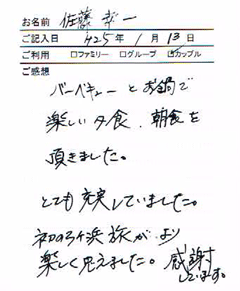 お名前 佐藤 幸一
ご記入日 H25年 1月 13日
ご利用 □ファミリー □グループ ☑カップル
ご感想
バーベキューとお鍋で
楽しい夕食、朝食を
頂きました。
とても充実していました。
初の3ヶ浜旅がより
楽しく思えました。感謝
しています。